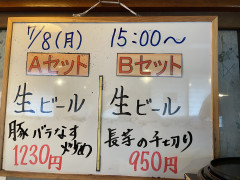 7/8(月) 15:00～
Aセット
生ビール
豚バラなす
炒め
1230円
Bセット
生ビール
長芋の千切り
950円